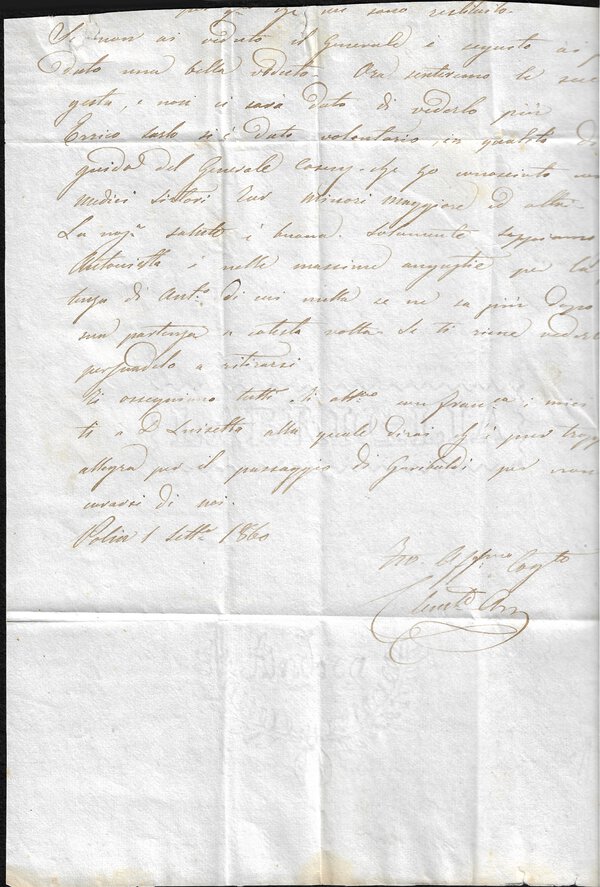 che mi sono restituito.
Se non ai veduto il Generale è segno à per
duto una bella veduta. Ora sentiremo le sue
gesta, e non ci sarà dato di vederlo più
Errico Sarlo si è dato volontario, in qualità di
guida del Generale Cosenz che go conosciuto con
Medici Sirtori minori Maggiore ed altri
La nos.a salute è buona. Solamente sappiamo
Antonietta è nelle massime angustie per la
tenza di Ant.o di cui nulla se ne sa più dopo
sua partenza a cotesta volta. Se ti viene veder
persuadelo a ritirarsi
Ti ossequiano tutti. Ti abb.mo con Fran.ca i miei
ti a D. Luisetta alla quale dirai ch'è pur trop
allegra per il passaggio di Garibaldi per non
curarsi di noi.
Polia 1 Sett.e 1860
Tuo Aff.mo Cog.to